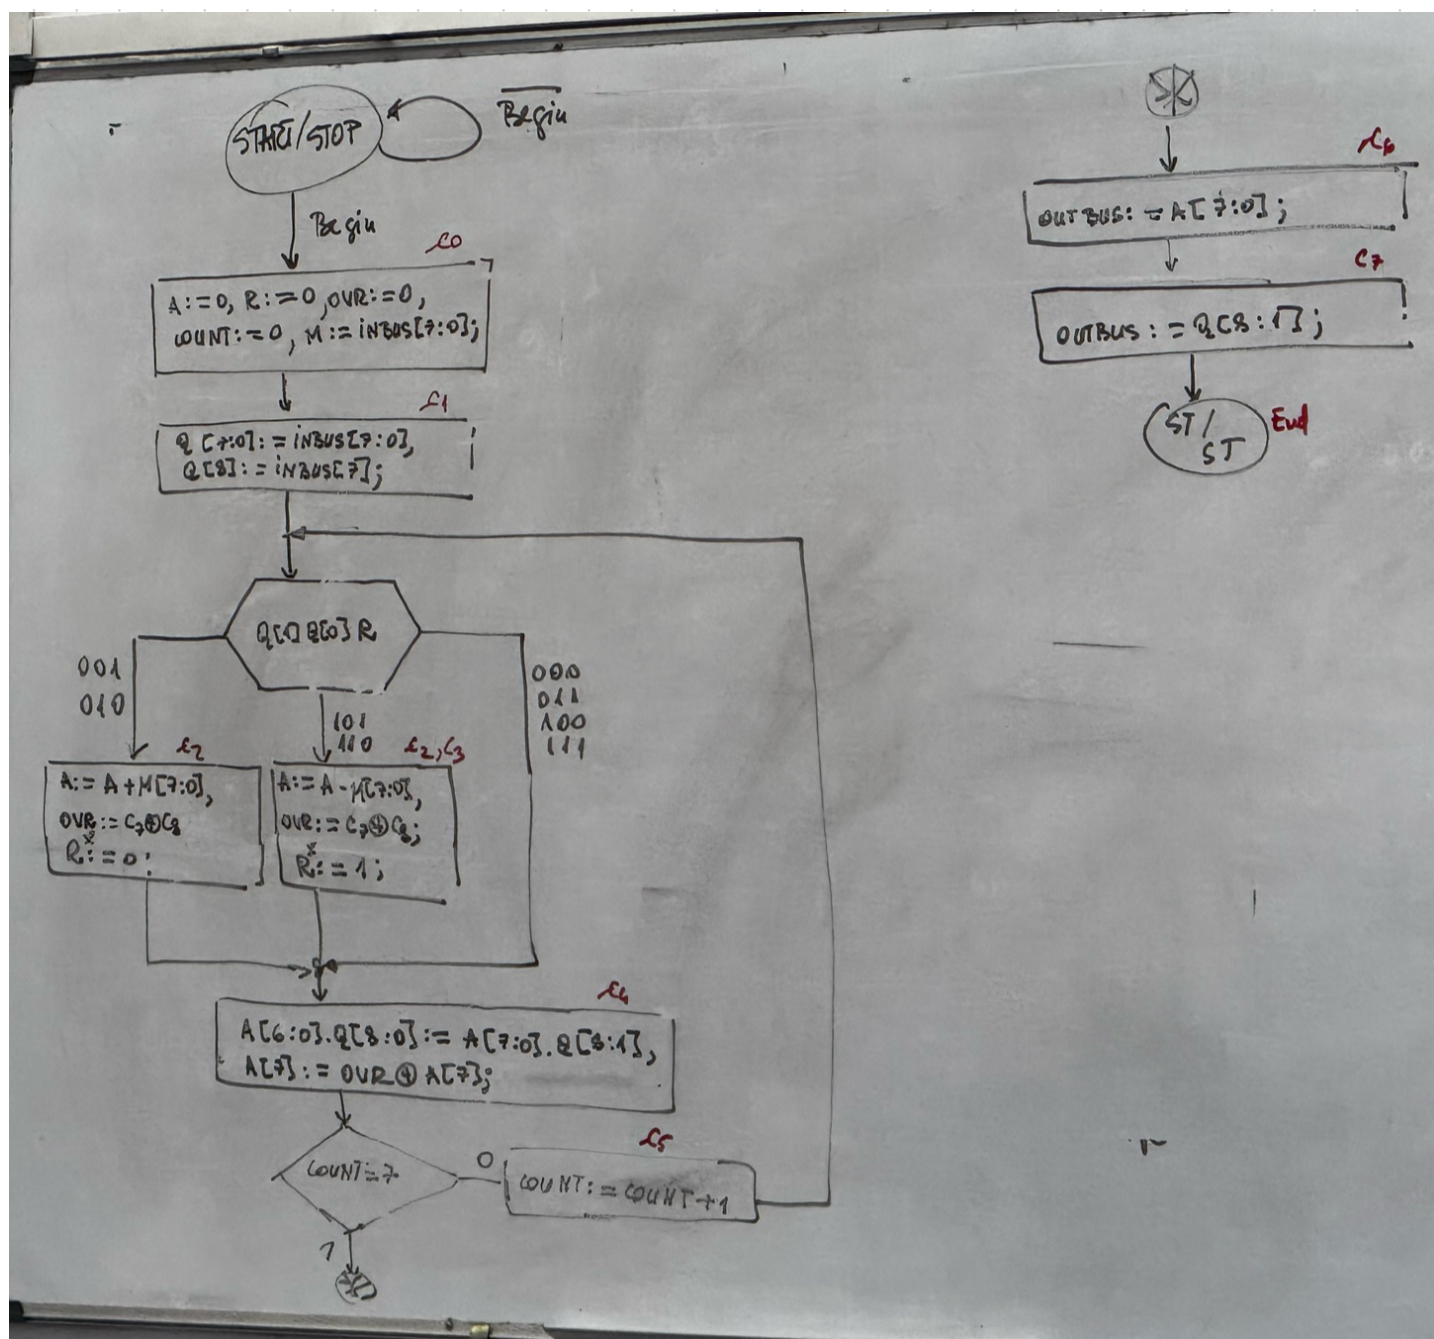 START/STOP
Begin
Begin
c0
A:=0, R:=0, OVR:=0,
COUNT:=0, M:=INBUS[7:0];
c1
Q[7:0]:=INBUS[7:0],
Q[8]:=INBUS[7];
Q[1]Q[0]R
001
010
101
110
000
011
100
111
c2
A:=A+M[7:0],
OVR:=C7⊕C8
R*:=0;
c2,c3
A:=A-M[7:0],
OVR:=C7⊕C8;
R*:=1;
c4
A[6:0].Q[8:0]:=A[7:0].Q[8:1],
A[7]:=OVR⊕A[7];
COUNT=7
0
1
c5
COUNT:=COUNT+1
c6
OUTBUS:=A[7:0];
c7
OUTBUS:=Q[8:1];
ST/
ST
End